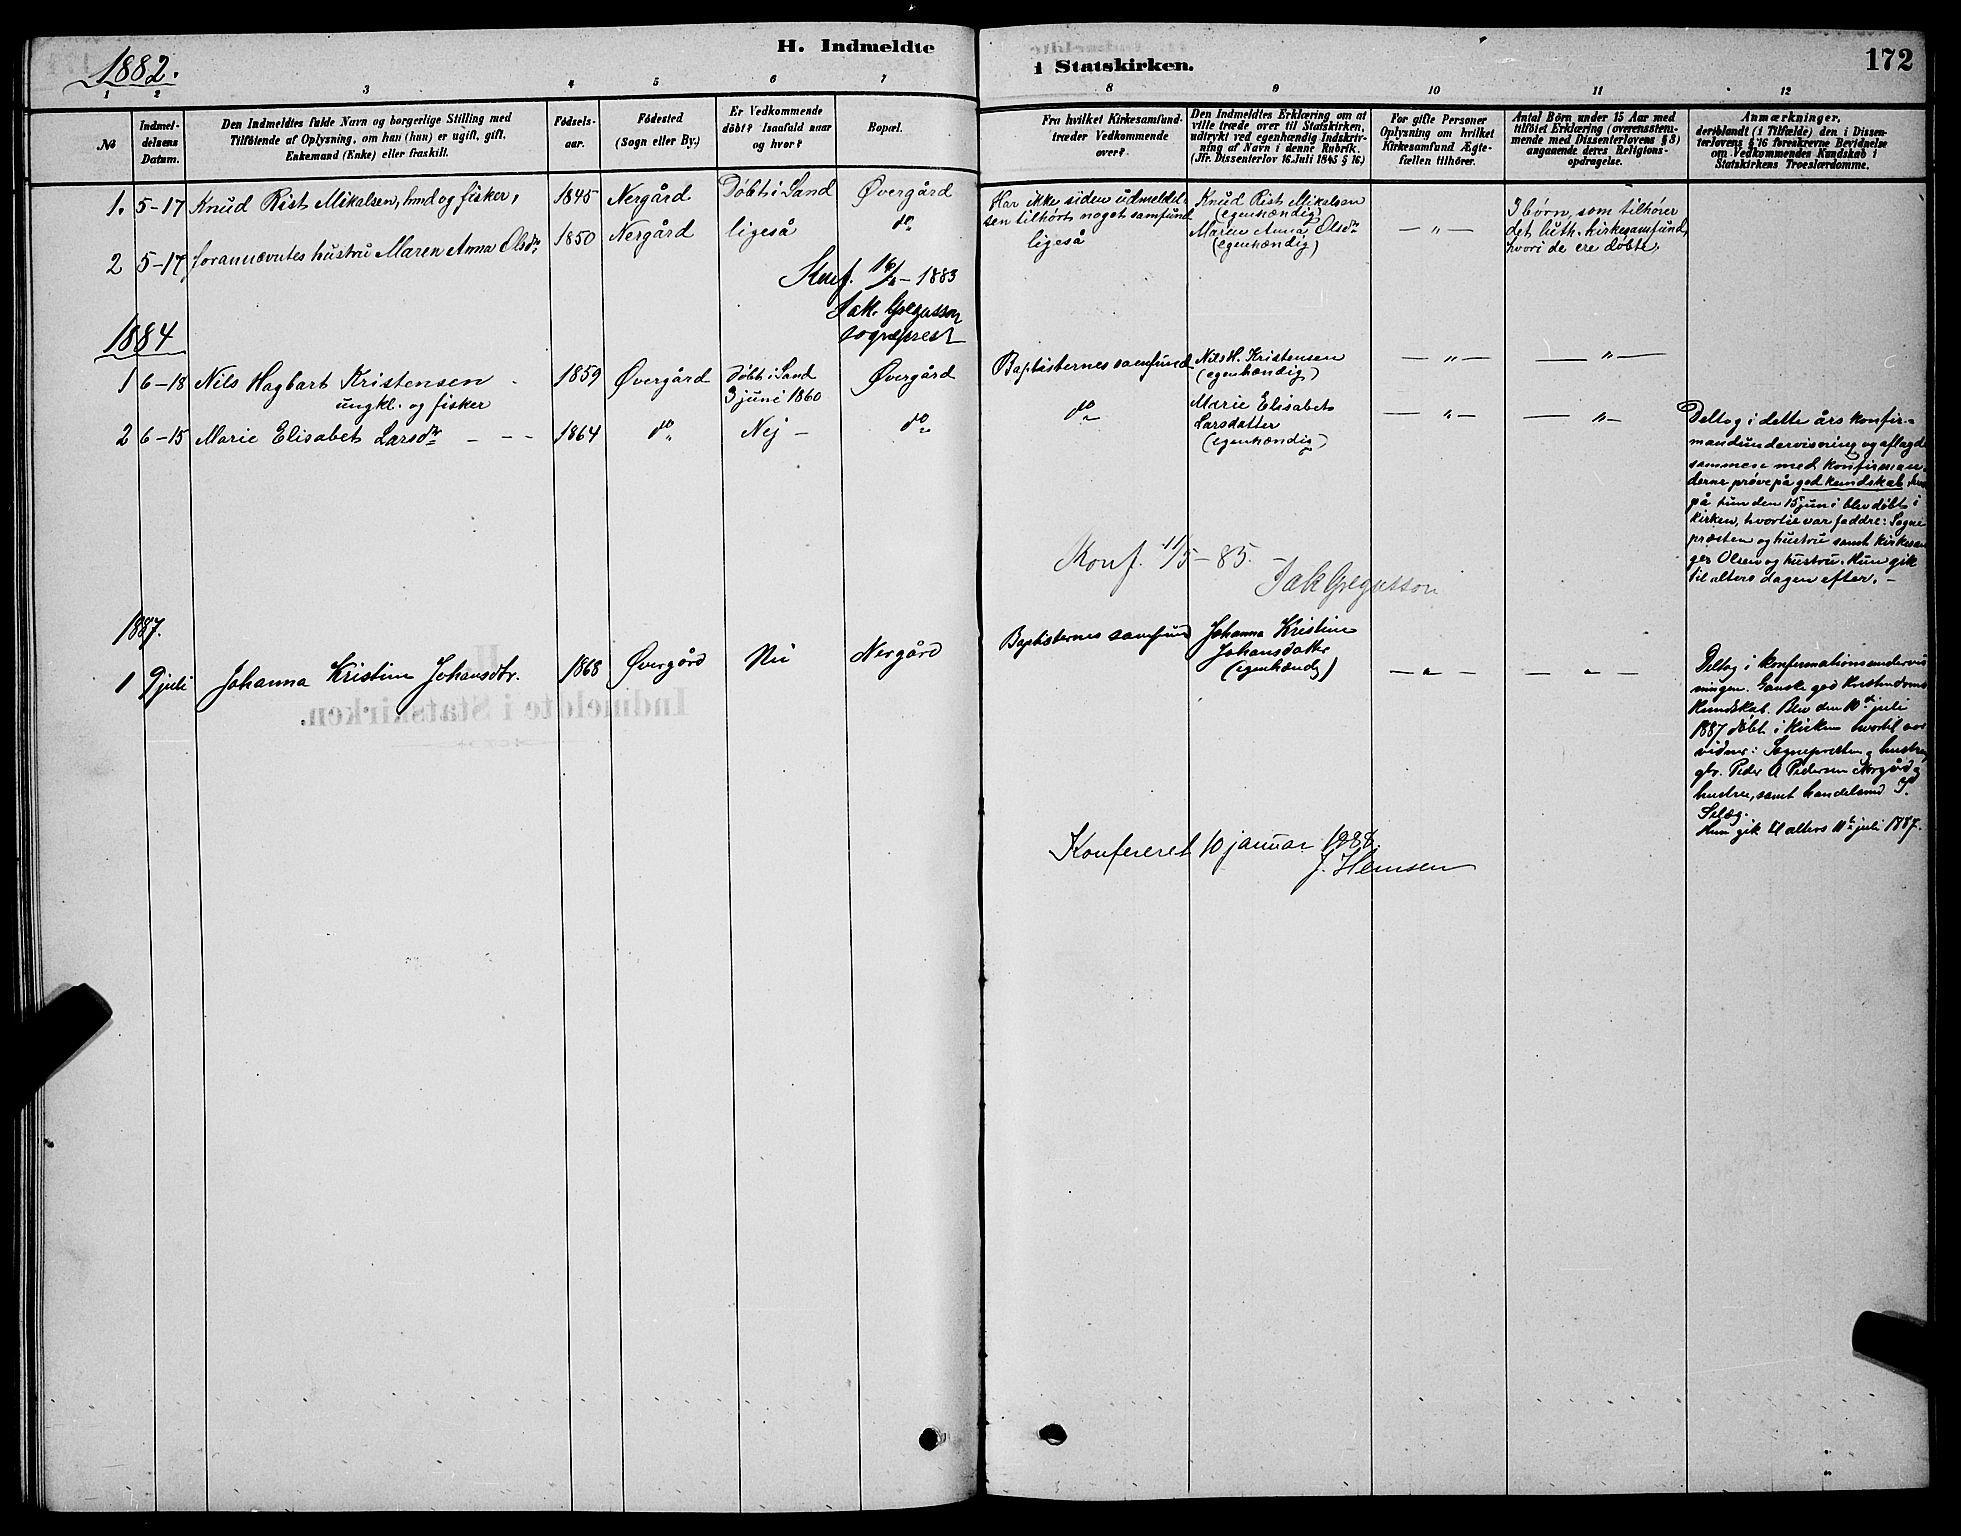 H. Indmeldte
i Statskirken.
172
1882.
1 2 3 4 5 6 7 8 9 10 11 12
№
Indmel-
delsens
Datum.
Den Indmeldtes fulde Navn og borgerlige Stilling med
Tilföiende af Oplysning, om han (hun) er ugift, gift,
Enkemand (Enke) eller fraskilt.
Födsels-
aar.
Födested
(Sogn eller By.)
Er Vedkommende
döbt? Isaafald naar
og hvor?
Bopæl.
Fra hvilket Kirkesamfund
træder Vedkommende
over?
Den Indmeldtes Erklæring om at
ville træde over til Statskirken,
udtrykt ved egenhændig Indskriv-
ning af Navn i denne Rubrik.
(Jfr. Dissenterlov 16 Juli 1845 § 16.)
For gifte Personer
Oplysning om hvilket
Kirkesamfund Ægte-
fællen tilhörer.
Antal Börn under 15 Aar med
tilföiet Erklæring (overensstem-
mende med Dissenterlovens § 8)
angaaende deres Religions-
opdragelse.
Anmærkninger,
deriblandt (i Tilfælde) den i Dissen-
terlovens § 16 foreskrevne Bevidnelse
om Vedkommendes Kundskab i
Statskirkens Troeslærdomme.
1. 5-17 Knud Rist Mikalsen, hmd og fisker, 1845 Nergård Döbt i Sand Övergård
Har ikke siden udmeldel-
sen tilhört noget samfund
Knud Rist Mikalsen
(egenhændig)
2 5-17 forannævntes hustru Maren Anna Olsdtr 1850 Nergård ligeså do
ligeså
Maren Anna Olsdtr
(egenhændig)
— " —
3 börn, som tilhörer
det luth. kirkesamfund,
hvori de ere döbte,
Konf. 16/1 - 1883
Jak. Gregusson
sogneprest
1884
1 6-18 Nils Hagbart Kristensen
ungkl. og fisker
1859 Övergård
Döbt i Sand
3 juni 1860
Övergård
Baptisternes samfund
Nils H. Kristensen
(egenhændig)
— " — — " —
2 6-15 Marie Elisabet Larsdtr - - - 1864 do Nej - do
do
Marie Elisabet
Larsdatter
(egenhændig)
— " — — " —
Deltog i dette års konfir-
mandundervisning og aflagde
sammen med konfirman-
derne pröve på god kundskab, hvor
på hun den 15 juni blev döbt i
kirken, hvortil var faddre: Sogne
præsten og hustru samt kirkesan
ger Olsen og hustru. Hun gik
til alters dagen efter. -
Konf. 11/5 - 85. -
Jak Gregusson
1887.
1 9 juli Johanna Kristine Johansdtr. 1868 Övergård Nei Nergård
Baptisternes samfund
Johanna Kristine
Johansdatter
(egenhændig)
— " — — " —
Deltog i konfirmationsundervis
ningen. Ganske god kristendoms
kundskab. Blev den 10de juli
1887 döbt i kirken hvortil var
vidner: Sognepresten og hustru,
gbr. Peder A Pedersen Nergård og
hustru, samt handelsmd J.
Selæg.
Hun gik til alters 11te juli 1887.
Konfereret 10 januar 1888.
J. Hemsen
H.
Indmeldte i Statskirken.